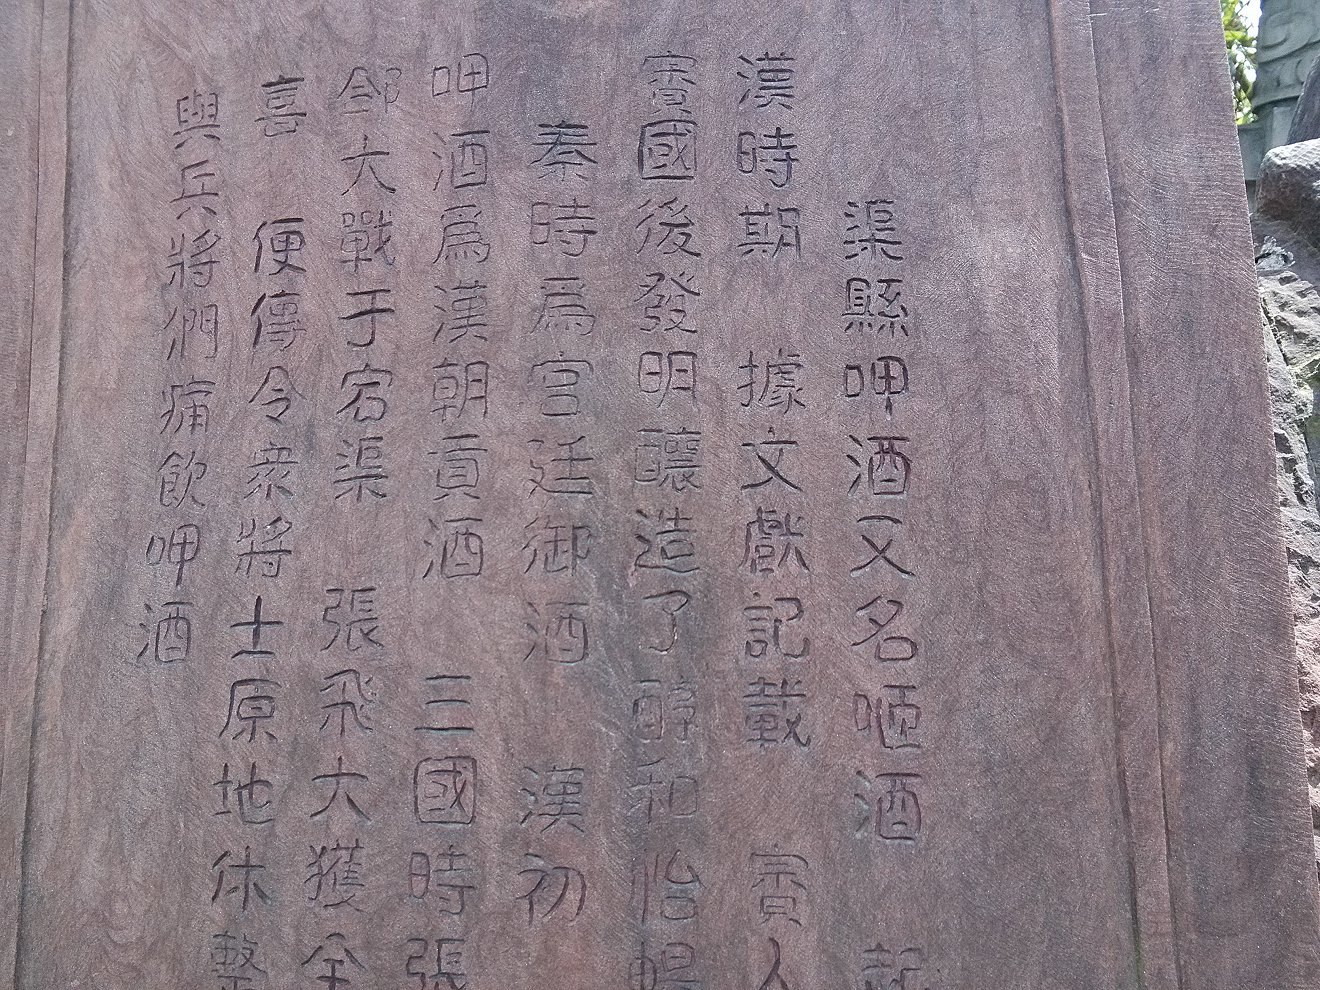 渠縣呷酒又名咂酒 起
漢時期 據文獻記載 賨人
賨國後發明釀造了醇和怡暢
秦時爲宫廷御酒 漢初
呷酒爲漢朝貢酒 三國時張
郃大戰于宕渠 張飛大獲全
喜 便傳令衆將士原地休整
與兵將們痛飲呷酒